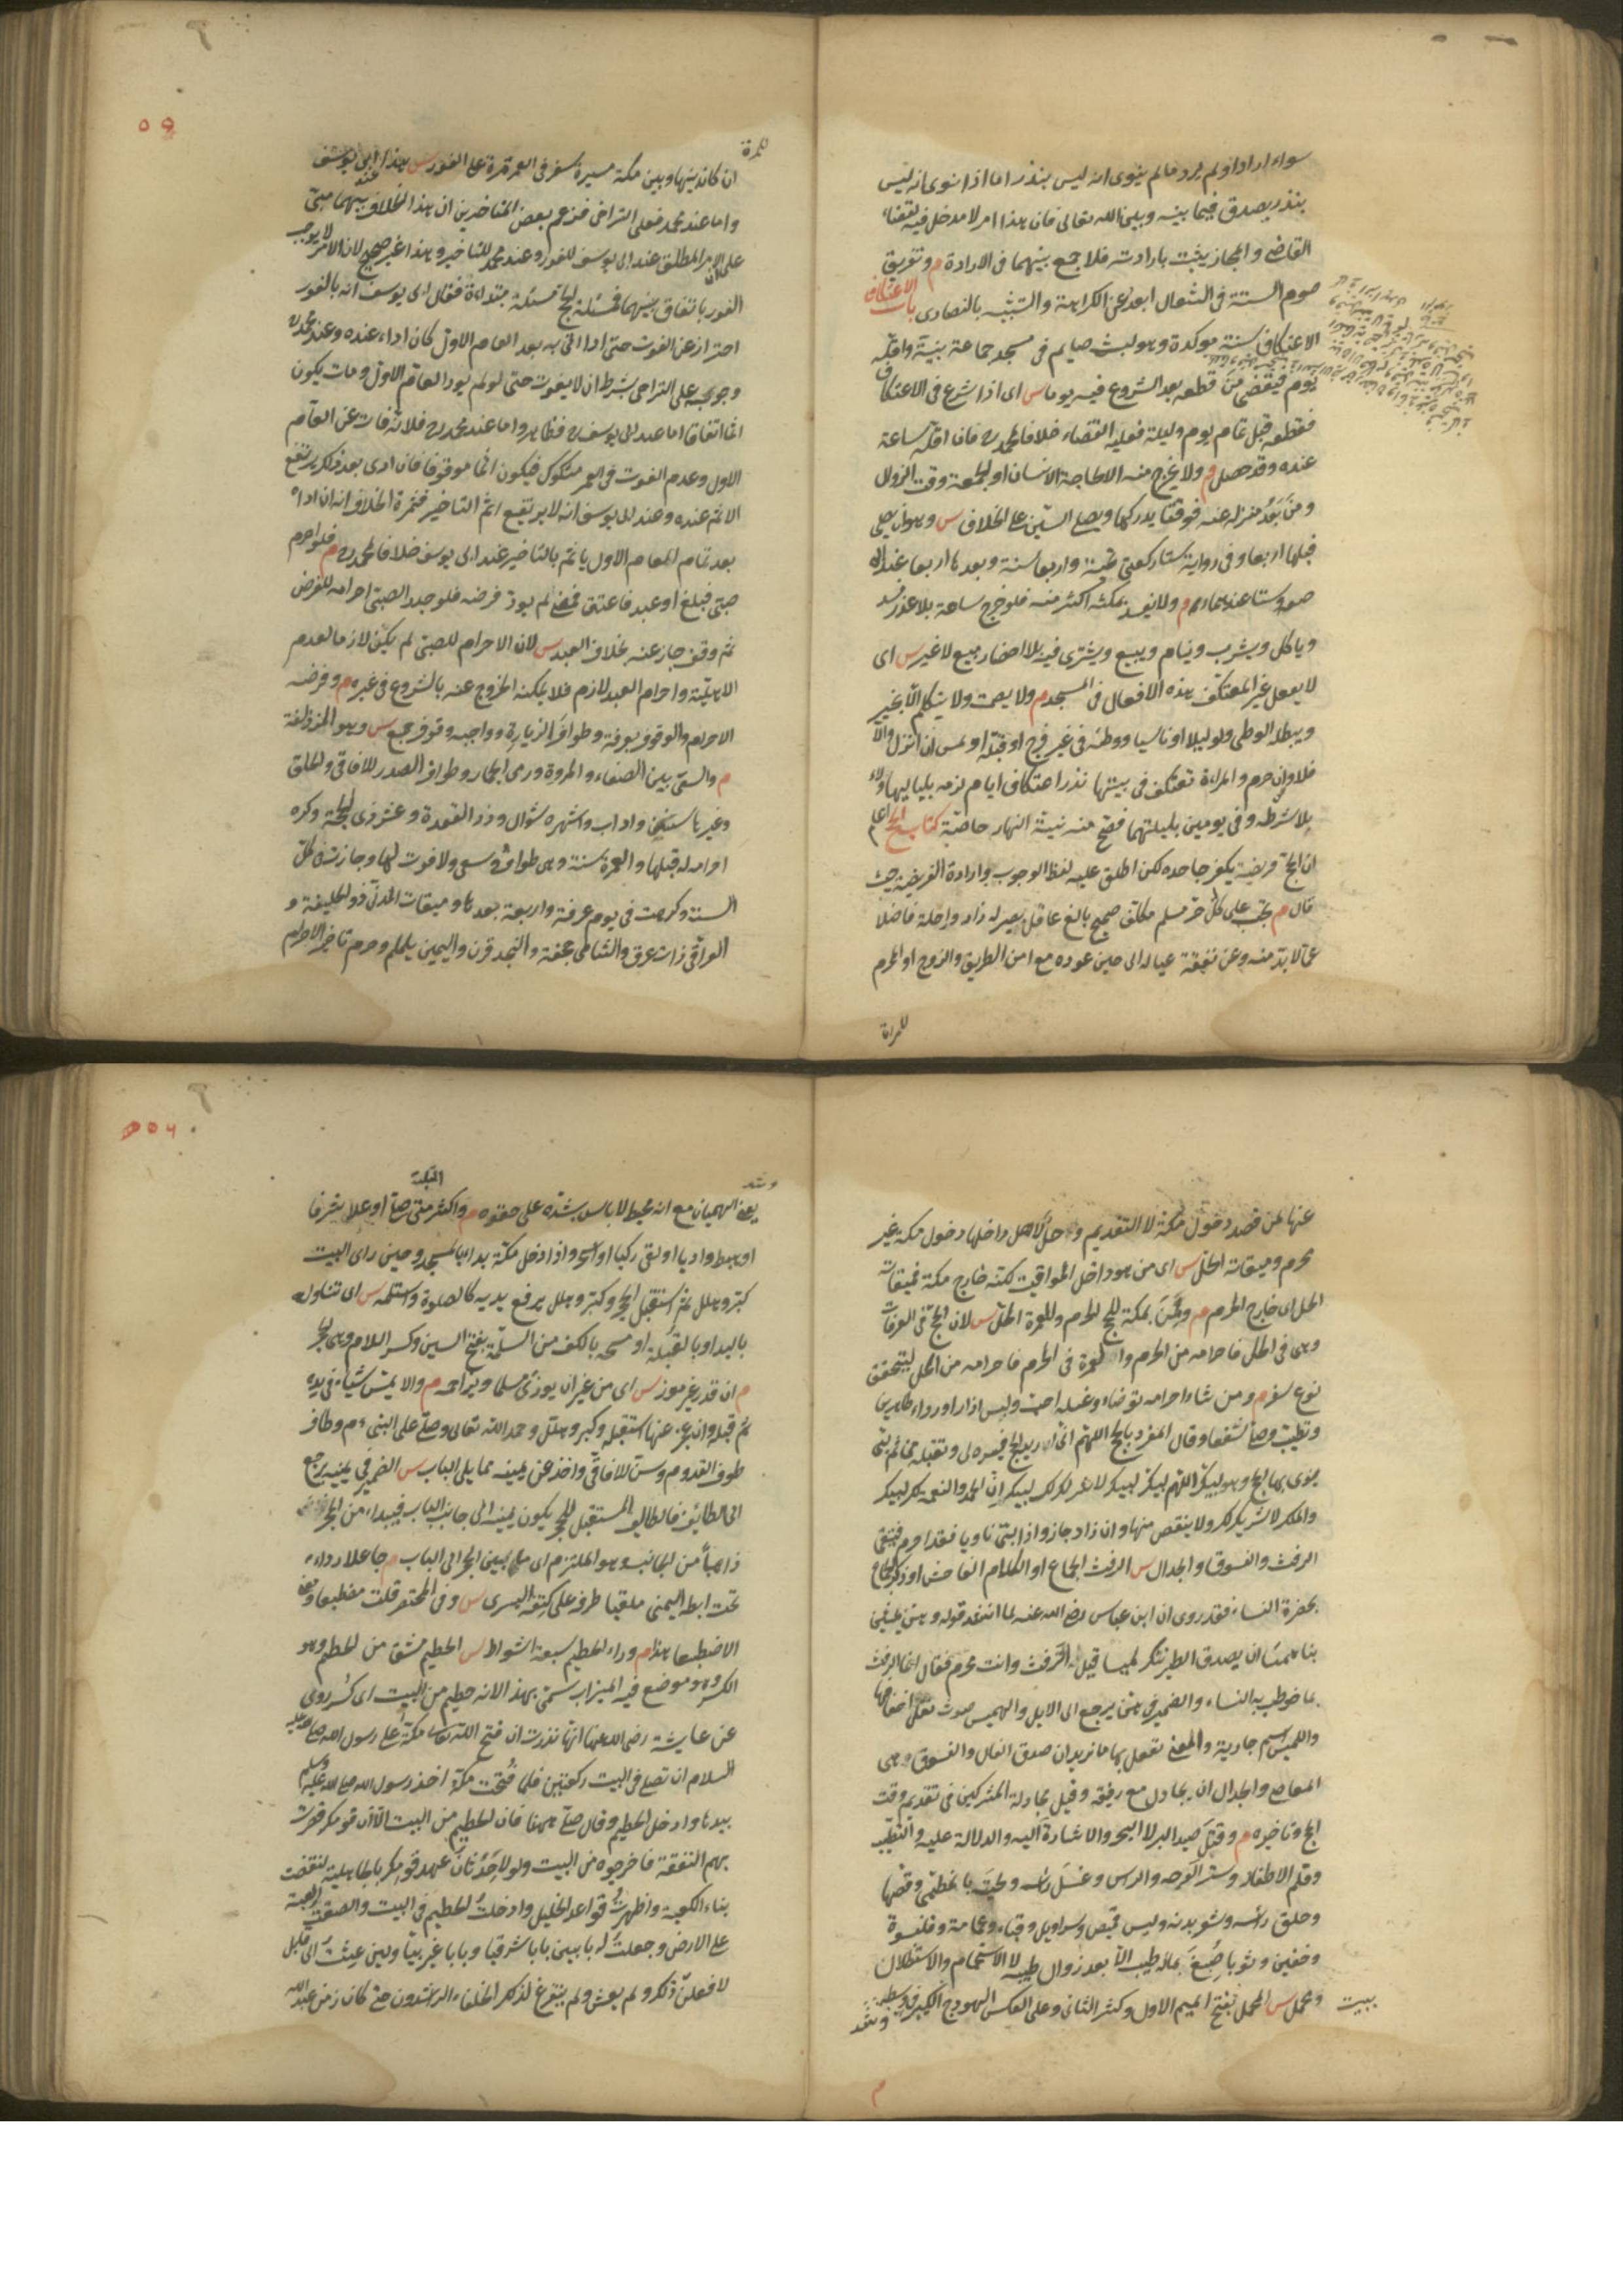 سواء اراد او لم يرد ما لم ينوى انه ليس بنذر اما اذا نوى انه ليس
بنذر يصدق فيما بينه وبين الله تعالى فان هذا امر لا مدخل فيه لقضاء
القاضى والمجاز يثبت بارادته فلا جمع بينهما فى الارادة م وتفريق
صوم الستة فى الشوال ابعد عن الكراهة والتشبيه بالنصارى باب الاعتكاف
الاعتكاف سنة موكدة وهو لبث صايم فى مسجد جماعة بنية واقله
يوم فيقضى من قطعه بعد الشروع فيه يوما س اى اذا شرع فى الاعتكاف
فقطعه قبل تمام يوم وليلة فعليه القضاء خلافا لمحمد رح فان اقله ساعة
عنده وقد حصل م ولا يخرج منه الا لحاجة الانسان او لجمعة وقت الزوال
ومن بعد منزله عنه فوقتا يدركها ويصلى السنن على الخلاف س وهو ان يصلى
قبلها اربعا وفى رواية ستا ركعتى تحية واربعا سنة وبعدها اربعا عند ابى
ح وستا عندهما م ولا يفسد بمكثه اكثر منه فلو خرج ساعة بلا عذر فسد
وياكل ويشرب وينام ويبيع ويشترى فيه بلا احضار مبيع لا غير س اى
لا يفعل غير المعتكف هذه الافعال فى المسجد م ولا يصمت ولا يتكلم الا بخير
ويبطله الوطى ولو ليلا او ناسيا ووطئه فى غير فرج او قبلة او لمس ان انزل والا
فلا وان حرم والمراة تعتكف فى بيتها نذر اعتكاف ايام لزمه بلياليها ولاء
بلا شرطه وفى يومين بليلتهما فصح منه نية النهار خاصة كتاب الحج اعلم
ان الحج فريضة يكفر جاحده لكن اطلق عليه لفظ الوجوب وارادة الفريضة حيث
قال م يجب على كل حر مسلم مكلف صحيح بالغ عاقل بصير له زاد وراحلة فاضلا
عما لا بد منه وعن نفقة عياله الى حين عوده مع امن الطريق والزوج او المحرم
للمراة
للمرة
ان كان بينها وبين مكة مسيرة سفر فى العمر مرة على الفور س هذا عند ابى يوسف
واما عند محمد فعلى التراخى فزعم بعض المتاخرين ان هذا الخلاف بينهما مبنى
على ان الامر المطلق عند ابى يوسف للفور وعند محمد للتاخير وهذا غير صحيح لان الامر لا يوجب
الفور باتفاق بينهما فمسئلة الحج مسئلة مبتداءة فقال ابى يوسف انه بالفور
احتراز عن الفوت حتى اذا اتى به بعد العام الاول كان اداء عنده وعند محمد رح
وجوبه على التراخى بشرط ان لا يفوت حتى لو لم يود العام الاول ومات يكون
اثما اتفاقا اما عند ابى يوسف رح فظاهر واما عند محمد رح فلانه فات عن العام
الاول وعدم الفوت فى العمر مشكوك فيكون اثما موقوفا فان ادى بعد ذلك يرتفع
الاثم عنده وعند ابى يوسف انه لا يرتفع اثم التاخير فثمرة الخلاف انه ان اداه
بعد تمام العام الاول ياثم بالتاخير عند ابى يوسف خلافا لمحمد رح م فلو احرم
صبى فبلغ او عبد فاعتق فمضى لم يود فرضه فلو جدد الصبى احرامه للفرض
ثم وقف جاز عنه بخلاف العبد س لان الاحرام للصبى لم يكن لازما لعدم
الاهلية واحرام العبد لازم فلا يمكنه الخروج عنه بالشروع فى غيره م وفرضه
الاحرام والوقوف بعرفة وطواف الزيارة وواجبه وقوف جمع س وهو المزدلفة
م والسعى بين الصفاء والمروة ورمى الجمار وطواف الصدر للافاقى والحلق
وغيرها سنن واداب واشهره شوال وذو القعدة وعشر ذى الحجة وكره
احرامه له قبلها والعمرة سنة وهى طواف وسعى ولا فوت لها وجازت فى كل
السنة وكرهت فى يوم عرفة واربعة بعدها وميقات المدنى ذو الحليفة و
العراقى ذات عرق والشامى جحفة والنجد قرن واليمين يلملم وحرم تاخير الاحرام
عنها لمن قصد دخول مكة لا التقديم وحل لاهل داخلها دخول مكة غير
محرم وميقاته الحل س اى من هو داخل المواقيت لكنه خارج مكة فميقاته
الحل اى خارج الحرم م ولمن بمكة للحج الحرم وللعمرة الحل س لان الحج فى العرفات
وهى فى الحل فاحرامه من الحرم والعمرة فى الحرم فاحرامه من الحل ليتحقق
نوع سفر م ومن شاء احرامه توضاء وغسله احب ولبس ازارا ورداء طاهرين
وتطيب وصلى شفعا وقال المفرد بالحج اللهم انى اريد الحج فيسره لى وتقبله منى ثم لبى
ينوى بها الحج وهو لبيك اللهم لبيك لبيك لا شريك لك لبيك ان الحمد والنعمة لك لبيك
والملك لا شريك لك ولا ينقص منها وان زاد جاز واذا لبى ناويا فقد احرم فيتقى
الرفث والفسوق والجدال س الرفث الجماع او الكلام الفاحش او ذكر الجماع
بحضرة النساء فقد روى ان ابن عباس رضى الله عنه لما انشد قوله وهن يمشين
بنا هميسا ان يصدق الطير ننك لميسا قيل له اترفث وانت محرم فقال انما الرفث
بما خوطب به النساء والضمير فى هن يرجع الى الابل والهميس صوت نقل اخفافها
واللميس اسم جارية والمعنى نفعل بها ما نريد ان صدق الفال والفسوق هى
المعاصى والجدال ان يجادل مع رفيقه وقيل مجادلة المشركين فى تقديم وقت
الحج وتاخيره م وقتل صيد البر لا البحر والاشارة اليه والدلالة عليه والتطيب
وقلم الاظفار وستر الوجه والراس وغسل راسه ولحيته بالخطمى وقصها
وحلق راسه وشعر بدنه ولبس قميص وسراويل وقباء وعمامة وقلنسوة
وخفين وثوبا صبغ بماله طيب الا بعد زوال طيبه لا الاستحمام والاستظلال
ببيت ومحمل س المحمل بفتح الميم الاول وكسر الثانى وعلى العكس الهودج الكبير
وشد
القبلة
يعنى الهميان مع انه مخيط لا باس بشده على حقوه م واكثر متى صلى او علا شرفا
او هبط واديا او لقى ركبا او اسحر واذا دخل مكة بدا بالمسجد وحين راى البيت
كبر وهلل ثم استقبل الحجر وكبر وهلل يرفع يديه كالصلوة واستلمه س اى تناوله
باليد او بالقبلة او مسحه بالكف من السلمة بفتح السين وكسر اللام وهى الحجر
م ان قدر غير موذ س اى من غير ان يوذى مسلما ويزاحمه م والا يمس شياء فى يده
ثم قبله وان عجز عنها استقبله وكبر وهلل وحمد الله تعالى وصلى على النبى ء م وطاف
طوف القدوم وسن للافاقى واخذ عن يمينه مما يلى الباب س الضمير فى يمينه يرجع
الى الطائف فالطائف المستقبل للحجر يكون يمينه الى جانب الباب فيبداء من الحجر
ذاهبا من الجانب وهو الملتزم اى ما بين الحجر الى الباب م جاعلا رداءه
تحت ابطه اليمنى ملقيا طرفه على كتفه اليسرى س وفى المختصر قلت مضطبعا
الاضطباع هذا م وراء الحطيم سبعة اشواط س الحطيم مشتق من الحطم وهو
الكسر وهو موضع فيه الميزاب سمى بهذا لانه حطيم من البيت اى كسر روى
عن عايشة رضى الله عنها انها نذرت ان فتح الله تعالى مكة على رسول الله صلى عليه
السلام ان تصلى فى البيت ركعتين فلما فتحت مكة اخذ رسول الله صلى الله عليه وسلم
بيدها وادخل الحطيم وقال صلى ههنا فان الحطيم من البيت الا ان قومك قصرت
بهم النفقة فاخرجوه من البيت ولولا حدثان عهد قومك بالجاهلية لنقضت
بناء الكعبة واظهرت قواعد الخليل وادخلت الحطيم فى البيت والصقت العتبة
على الارض وجعلت له بابين بابا شرقيا وبابا غربيا ولين عشت الى قابل
لافعلن ذلك ولم يعش ولم يتفرغ لذلك الخلفاء الراشدون حتى كان زمن عبد الله